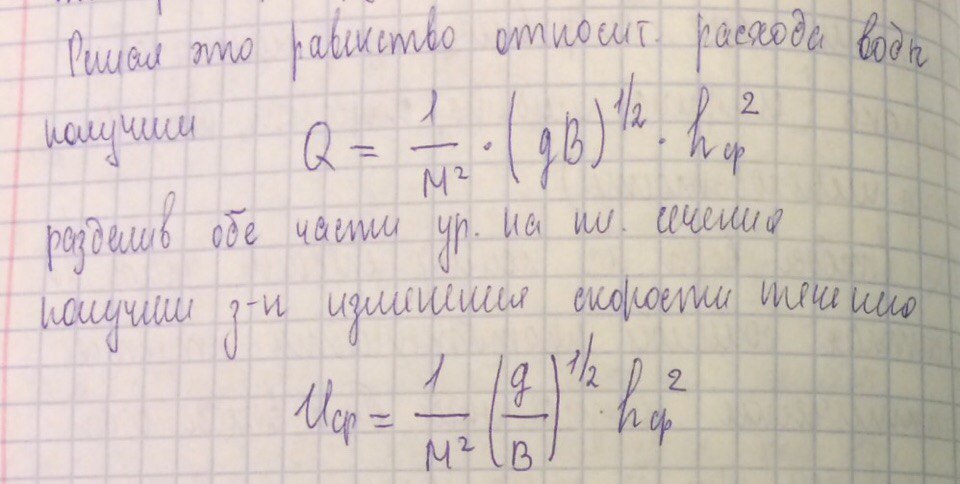 Решая это равенство относит. расхода воды
получим Q = 1/M² · (gB)^1/2 · hср²
разделив обе части ур. на пл. сечения
получим з-н изменения скорости течения
Uср = 1/M² (g/B)^1/2 · hср²